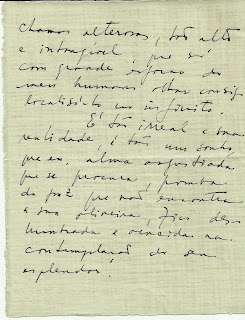 chamas alterosas, tão alto
e intangível, que só
com grande esforço do
meu humano olhar consigo
localizá-lo no infinito.
É tão irreal a sua
realidade, é tão um sonho,
que eu, alma angustiada
que se procura, pomba
da paz que não encontra
a sua oliveira, fico des-
lumbrada e vencida na
contemplação do seu
esplendor.